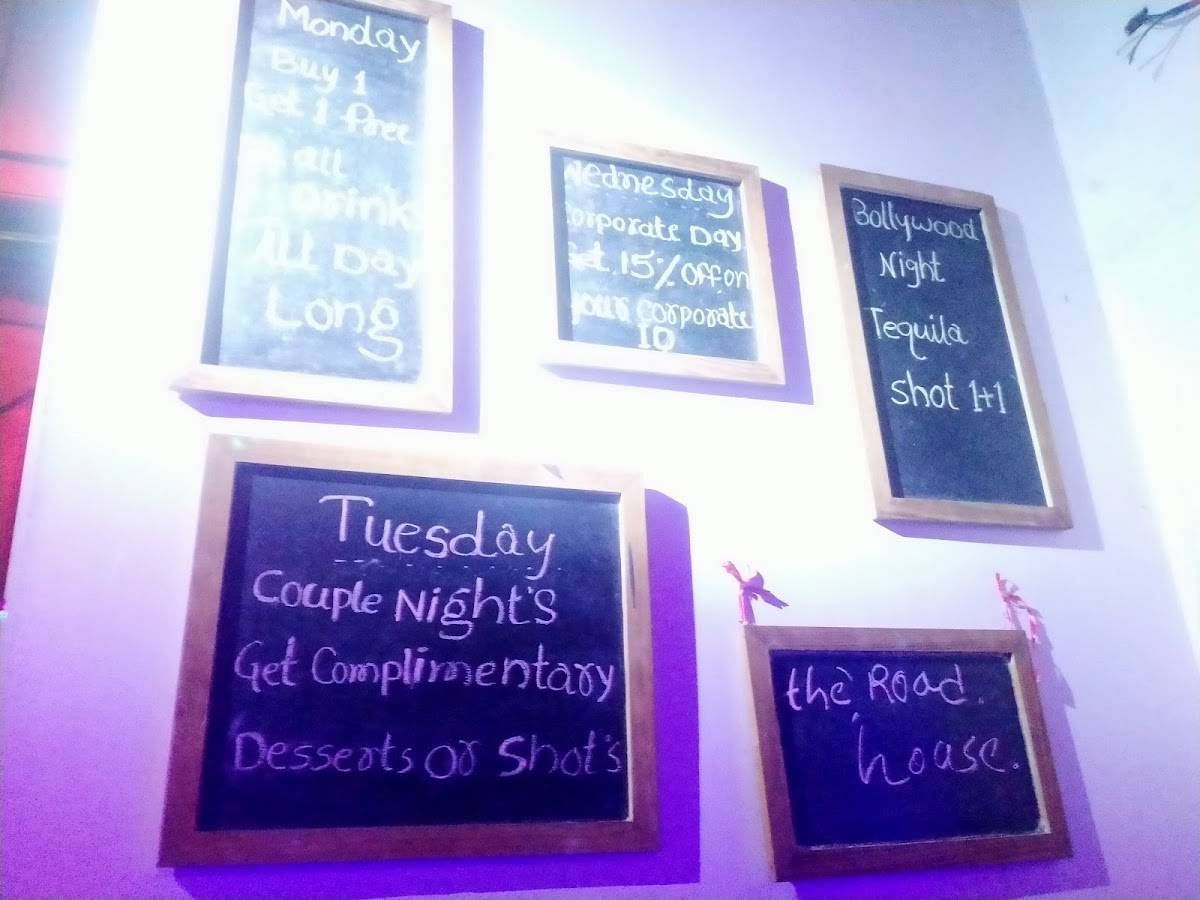 Monday
Buy 1
Get 1 free
all
Drink
All Day
Long
Wednesday
Corporate Day
Get 15% off on
your corporate
ID
Bollywood
Night
Tequila
shot 1+1
Tuesday
Couple Night's
Get Complimentary
Desserts or Shot's
the Road.
house.